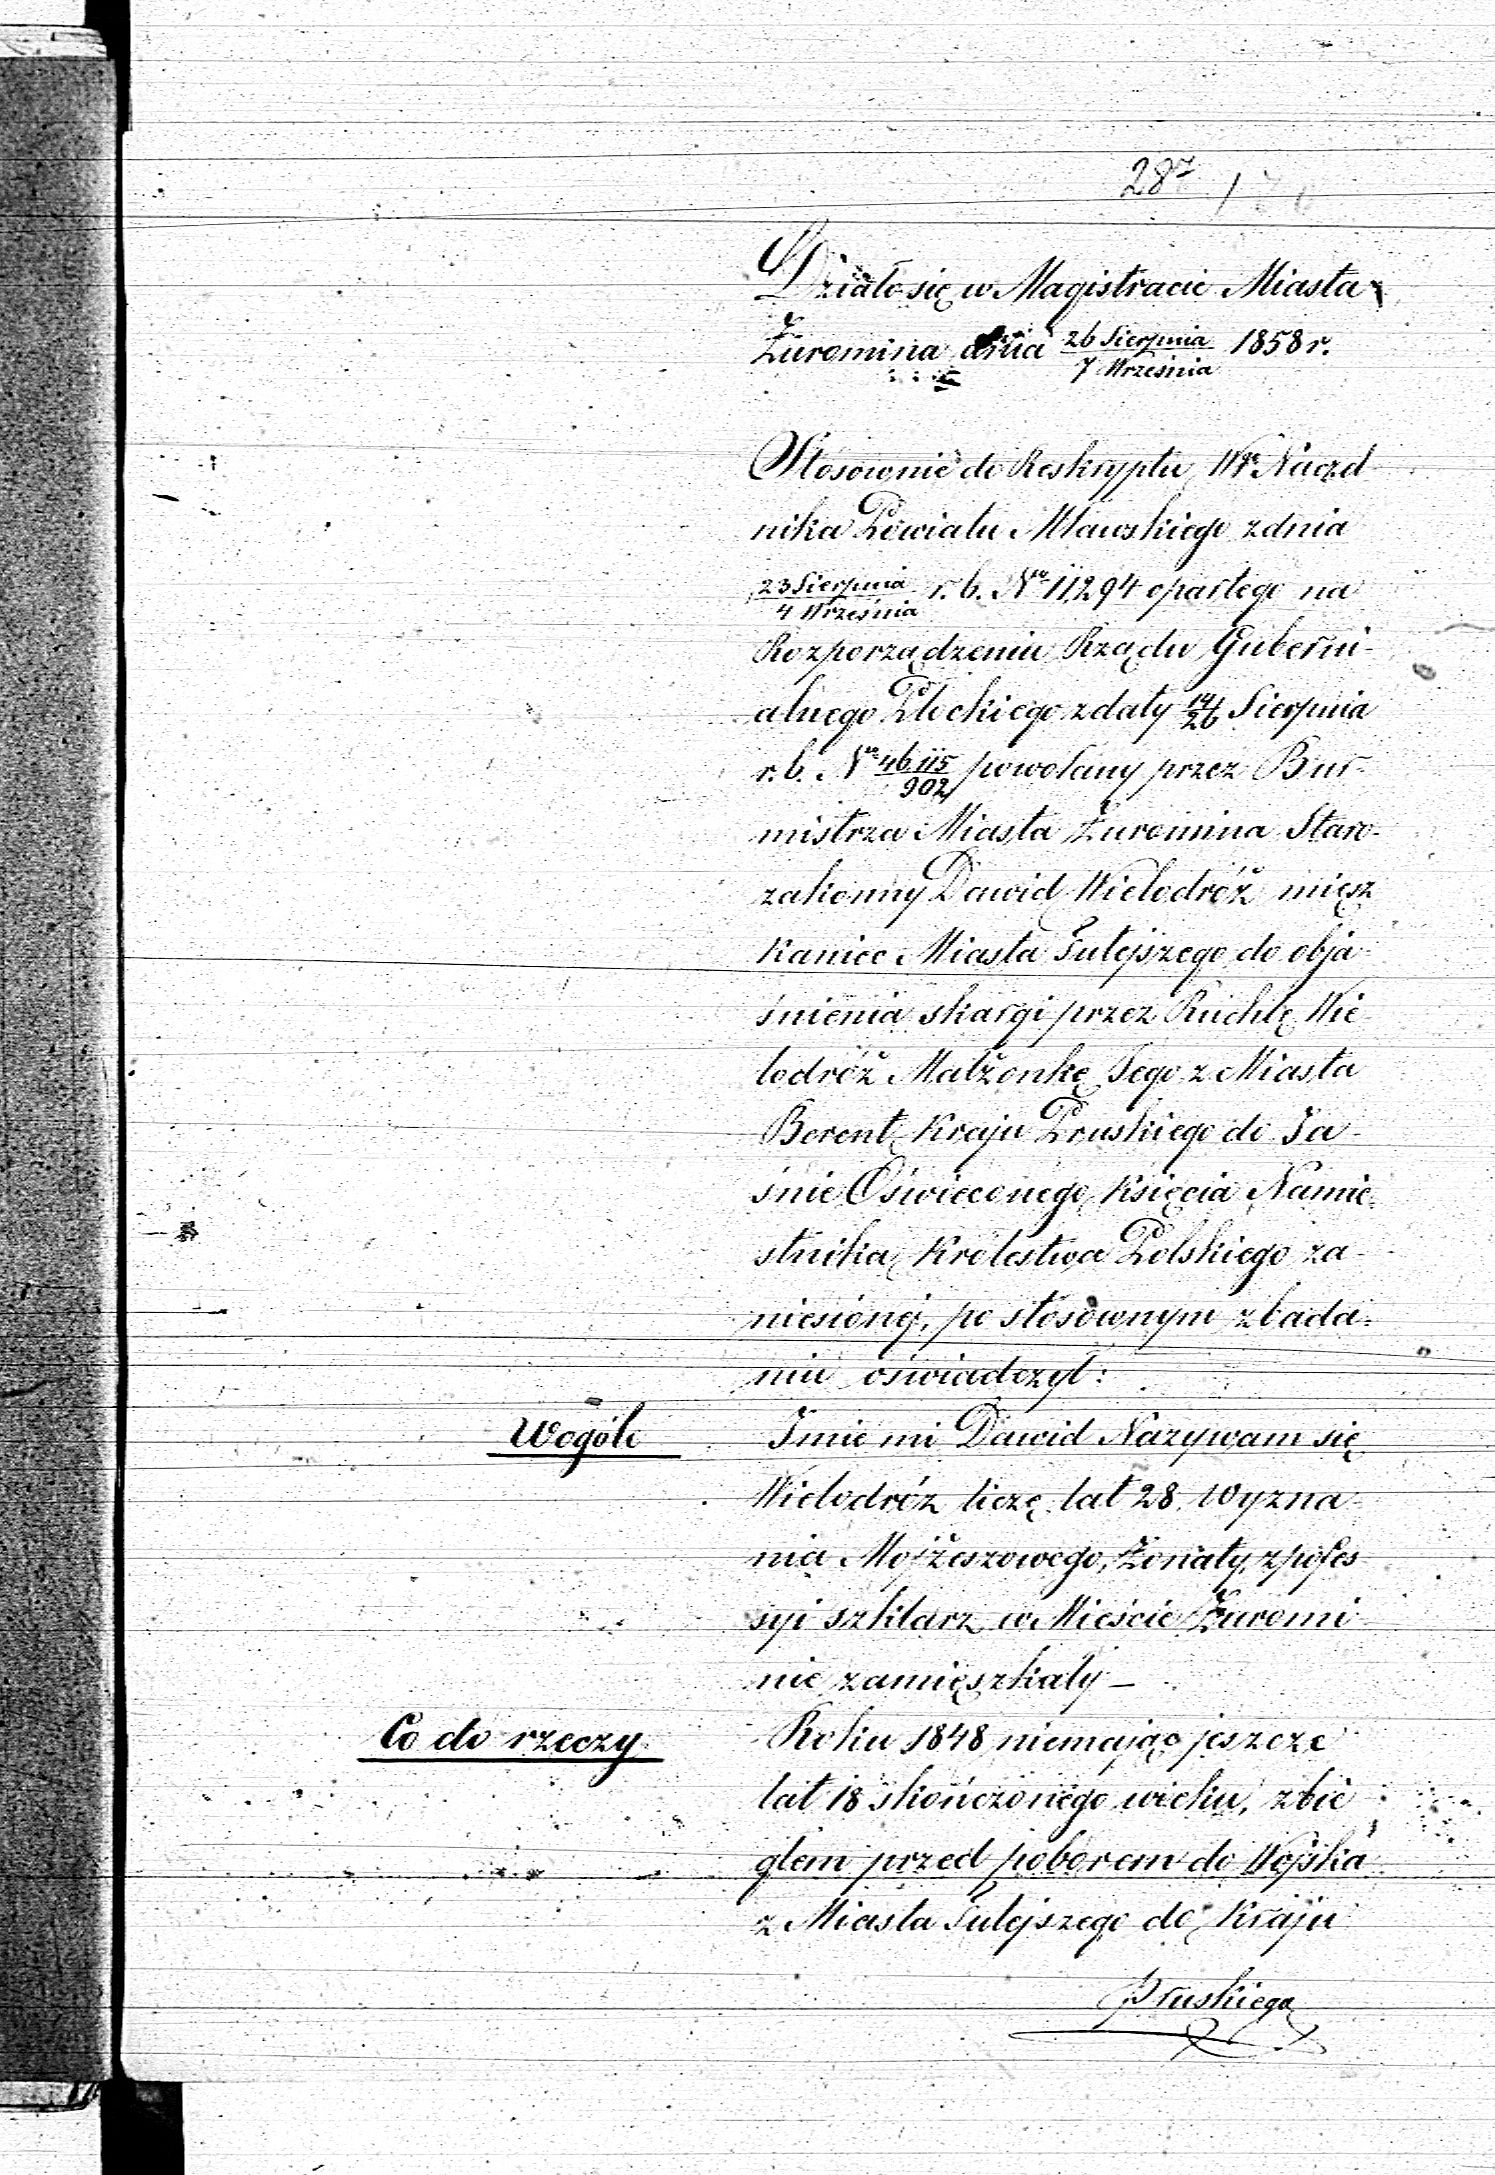 287
Działo się w Magistracie Miasta
Żuromina dnia 26 Sierpnia / 7 Września 1858 r.
Stosownie do Reskryptu Wgo Naczel
nika Powiatu Mławskiego z dnia
23 Sierpnia / 4 Września r. b. No 11,294 opartego na
Rozporządzeniu Rządu Guberni-
alnego Płockiego z daty 14/26 Sierpnia
r. b. No 46.115/902 powołany przez Bur-
mistrza Miasta Żuromina Staro-
zakonny Dawid Wielodróż miesz
kaniec Miasta Tutejszego do obja
śnienia skargi przez Ruchlę Wie
lodróż Małżonkę Jego z Miasta
Berent Kraju Pruskiego do Ja-
śnie Oświeconego Księcia Namie
stnika Królestwa Polskiego za-
niesionej, po stosownym zbada-
niu oświadczył:
Wogóle
Imie mi Dawid Nazywam się
Wielodróż liczę lat 28. Wyzna
nia Mojżeszowego, Żonaty, z pofes
syi szklarz w Mieście Żuromi
nie zamieszkały —
Co do rzeczy
Roku 1848 niemając jeszcze
lat 18 skończonego wieku, zbie
głem przed poborem do Wojska
z Miasta Tutejszego do Kraju
Pruskiego